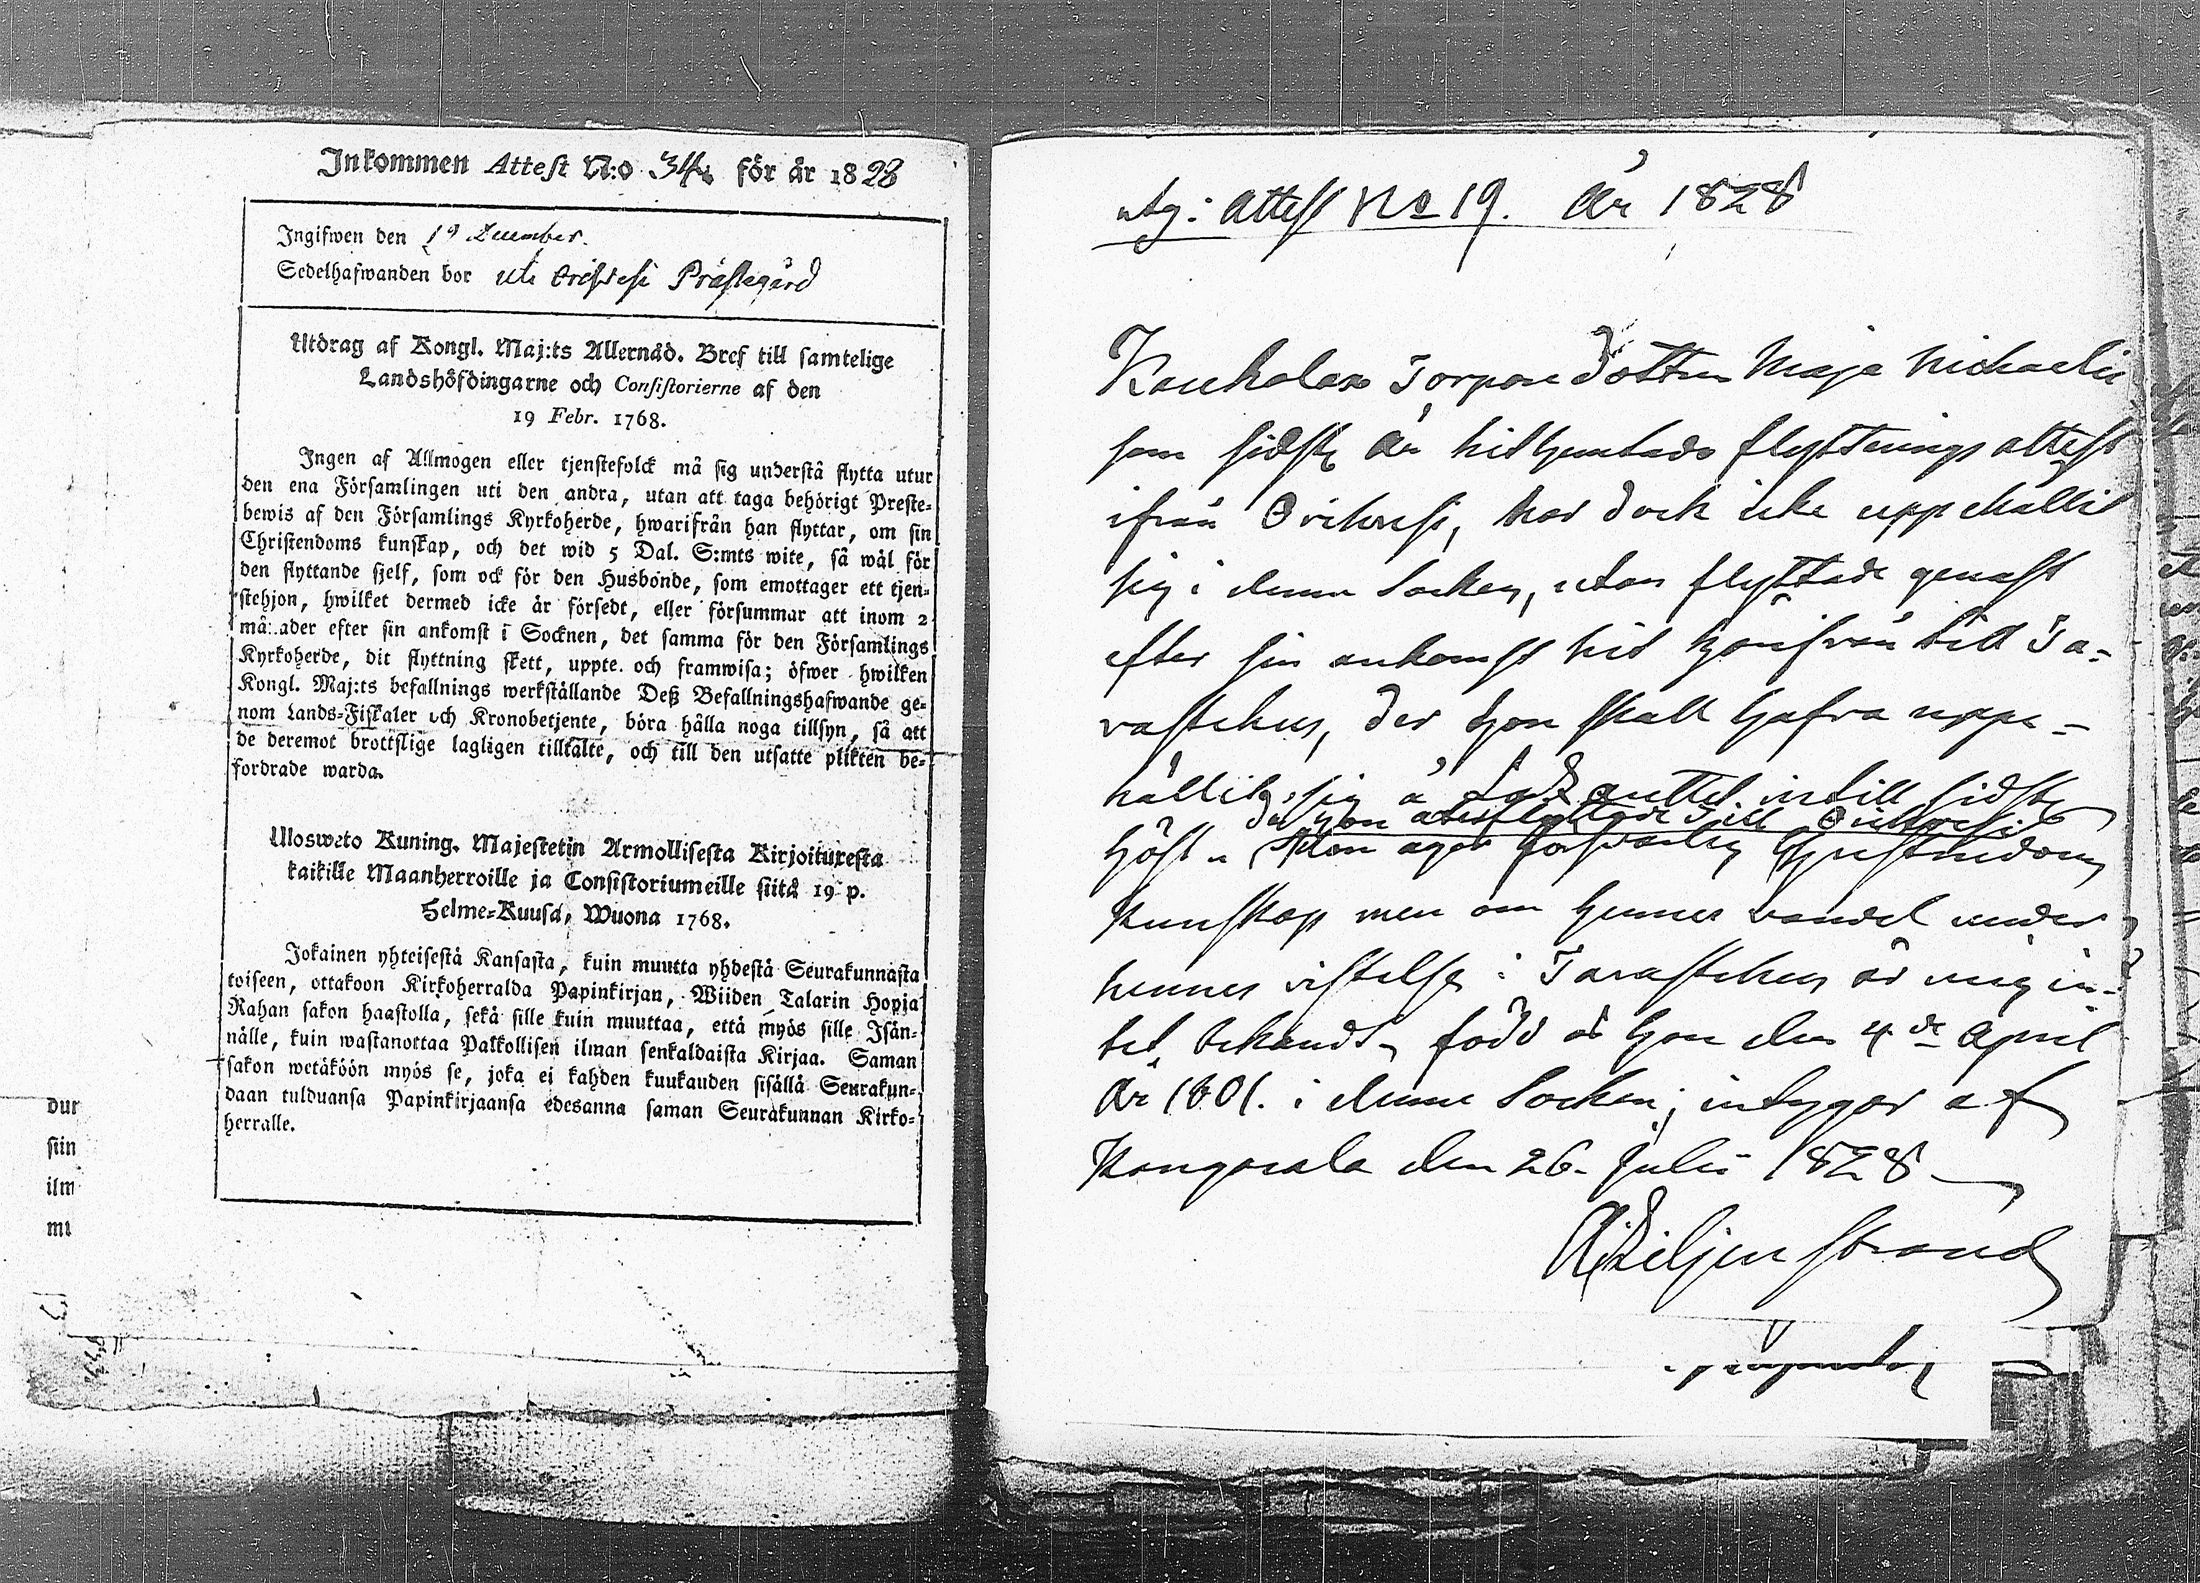 Inkommen Attest N:o 34. för år 1828
Ingifwen den 19 December.
Sedelhafwanden bor uti Orihvesi Prästegård
Utdrag af Kongl. Maj:ts Allernåd. Bref till samtelige
Landshöfdingarne och Consistorierne af den
19 Febr. 1768.
Ingen af Allmogen eller tjenstefolck må sig understå flytta utur
den ena Församlingen uti den andra, utan att taga behörigt Preste-
bewis af den Församlings Kyrkoherde, hwarifrån han flyttar, om sin
Christendoms kunskap, och det wid 5 Dal. S:mts wite, så wäl för
den flyttande sjelf, som ock för den Husbonde, som emottager ett tjen-
stehjon, hwilket dermed icke är försedt, eller försummar att inom 2
må:ader efter sin ankomst i Socknen, det samma för den Församlings
Kyrkoherde, dit flyttning skett, uppte och framwisa; öfwer hwilken
Kongl. Maj:ts befallnings werkställande Deß Befallningshafwande ge-
nom Lands-Fiskaler och Kronobetjente, böra hålla noga tillsyn, så att
de deremot brottslige lagligen tilltalte, och till den utsatte plikten be-
fordrade warda.
Ulosweto Kuning. Majestetin Armollisesta Kirjoituxesta
kaikille Maanherroille ja Consistoriumeille siitä 19 p.
Helme-Kuusa, Wuona 1768.
Jokainen yhteisestä Kansasta, kuin muutta yhdestä Seurakunnasta
toiseen, ottakoon Kirkoherralda Papinkirjan, Wiiden Talarin Hopja
Rahan sakon haastolla, sekä sille kuin muuttaa, että myös sille Isän-
nälle, kuin wastanottaa Palkollisen ilman senkaldaista Kirjaa. Saman
sakon wetäköön myös se, joka ei kahden kuukauden sisällä Seurakun-
daan tulduansa Papinkirjaansa edesanna saman Seurakunnan Kirko-
herralle.
dur
siin
ilm
mu
utg: attest No 19. År 1828
Kauhalax Torpare Dottren Maja Michaelis
som sidste år hithemtade flyttnings attest
ifrån Orihvesi, har dock icke uppehållit
sig i denna Socken, utan flyttade genast
efter sin ankomst hit härifrån till Ta-
vastehus, der hon skall hafva uppe-
hållit sig å intill sidste
da hon till Orihvesi
höst. Hon äger försvarlig Christendoms
kunskap men om hennes vandel under
hennes vistelse i Tavastehus är mig in-
tet bekandt, född är hon den 4de April
År 1801. i denna Socken, intygar af
Kangasala den 26. Julii 1828
A Liljenstrand